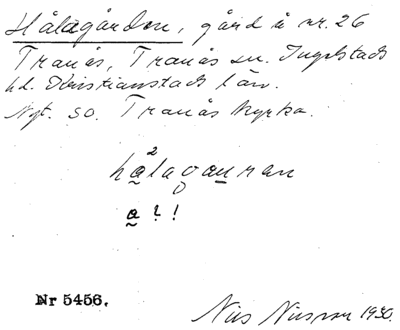 Hålagården, gård å nr. 26
Tranås, Tranås sn. Ingelstads
hd. Kristianstads län.
Nyt. so. Tranås kyrka.
2
hålagauran
a ? !
Nr 5456.
Nils Nilsson 1930.